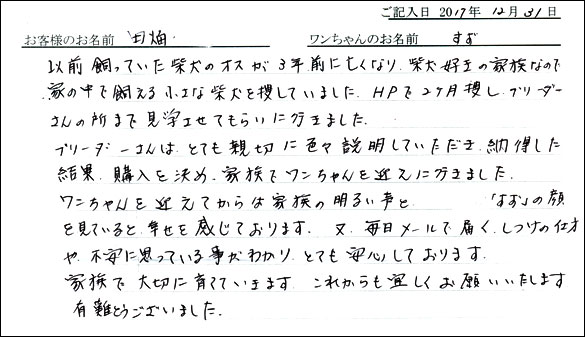 ご記入日 2017年 12月 31日
お客様のお名前 田畑 ワンちゃんのお名前 すず
以前飼っていた柴犬のオスが3年前に亡くなり、柴犬好きの家族なので
家の中で飼える小さな柴犬を捜していました。HPで2ヶ月捜し、ブリーダー
さんの所まで見学させてもらいに行きました。
ブリーダーさんは、とても親切に色々説明していただき、納得した
結果、購入を決め、家族でワンちゃんを迎えに行きました。
ワンちゃんを迎えてからは家族の明るい声と 「すず」の顔
を見ていると、幸せを感じております。又、毎日メールで届く、しつけの仕方
や、不安に思っている事がわかり、とても安心しております。
家族で大切に育てていきます。これからも宜しくお願いいたします
有難とうございました。